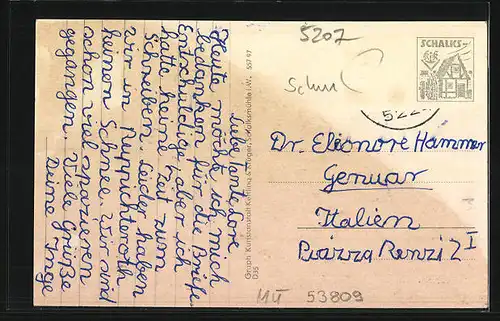 5207
Schul
SCHALKS-
522
Liebe Tante Lore
Heute möchte ich mich
bedanken für die Briefe.
Entschuldige aber ich
hatte keine Zeit zum
Schreiben. Leider haben
wir in Ruppichteroth
keinen Schnee. Wir sind
schon viel spazieren
gegangen. Viele Grüße
Deine Inge
Graph. Kunstanstalt Schalksmühle i.W. 557 97
D35
Dr. Eleonore Hammer
Genuar
Italien
Piazza Renzi 2 I
MÜ 53809